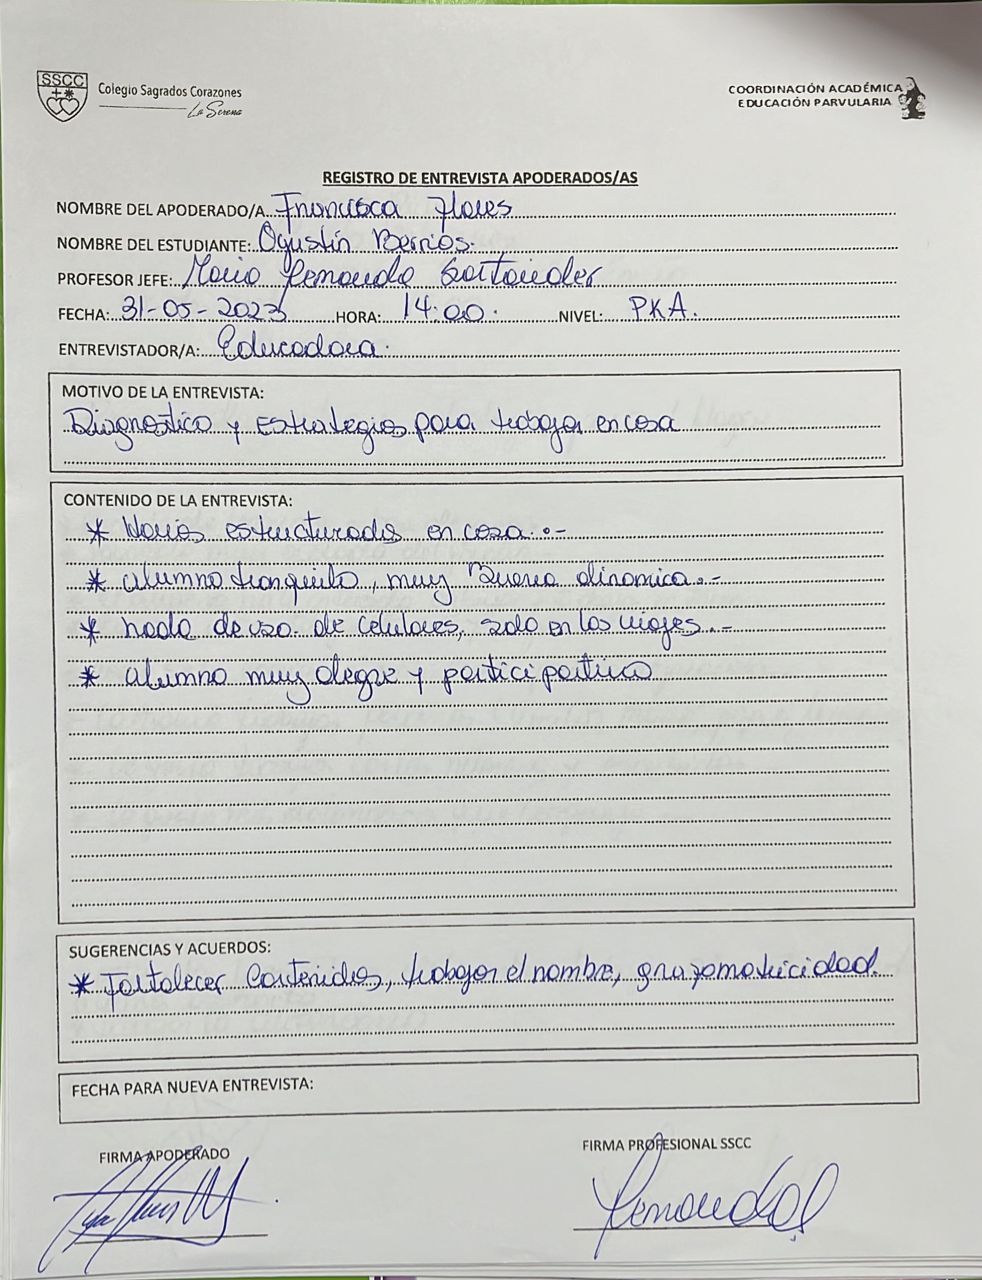 SSCC
Colegio Sagrados Corazones
La Serena
COORDINACIÓN ACADÉMICA
EDUCACIÓN PARVULARIA
REGISTRO DE ENTREVISTA APODERADOS/AS
NOMBRE DEL APODERADO/A Francisca Flores
NOMBRE DEL ESTUDIANTE: Agustín Berrios.
PROFESOR JEFE: María Fernanda
FECHA: 31-05-2023 HORA: 14:00. NIVEL: PKA.
ENTREVISTADOR/A: Educadora.
MOTIVO DE LA ENTREVISTA:
Diagnostico y Estrategias para trabajar en casa
CONTENIDO DE LA ENTREVISTA:
* estructurados en casa.-
* alumno tranquilo, muy Buena dinamica.-
* nada de uso de celulares, solo en los viajes.-
* alumno muy alegre y participativo
SUGERENCIAS Y ACUERDOS:
* Fortalecer Contenidos, trabajar el nombre, grafomotricidad.
FECHA PARA NUEVA ENTREVISTA:
FIRMA APODERADO FIRMA PROFESIONAL SSCC